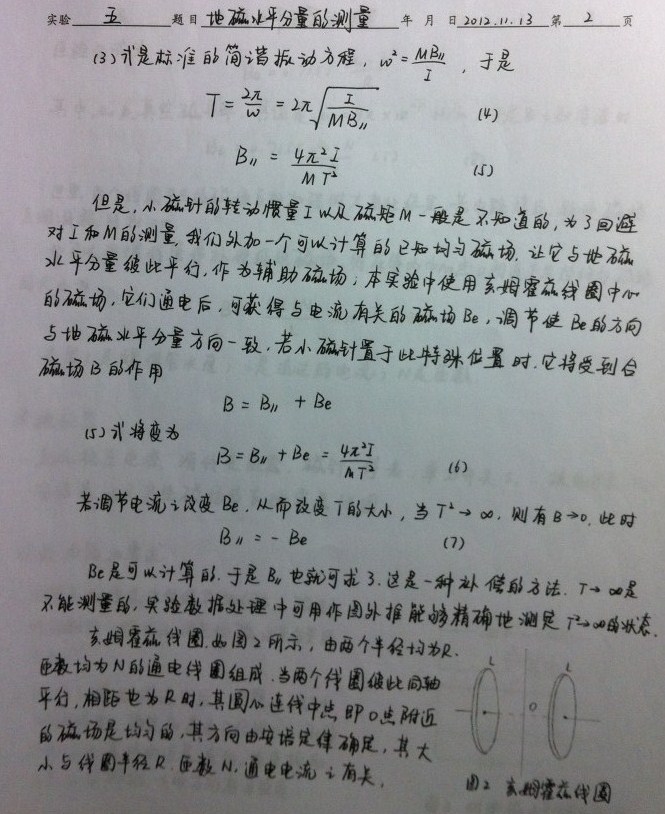 实验 五 题目 地磁水平分量的测量 年 月 日 2012.11.13 第 2 页
(3)式是标准的简谐振动方程, ω² = MB∥/I , 于是
T = 2π/ω = 2π√(I/MB∥) (4)
B∥ = 4π²I/MT² (5)
但是,小磁针的转动惯量I以及磁矩M一般是不知道的,为了回避
对I和M的测量,我们外加一个可以计算的已知均匀磁场,让它与地磁
水平分量彼此平行,作为辅助磁场;本实验中使用亥姆霍兹线圈中心
的磁场,它们通电后,可获得与电流有关的磁场Be,调节使Be的方向
与地磁水平分量方向一致,若小磁针置于此特殊位置时,它将受到合
磁场B的作用
B = B∥ + Be
(5)式将变为
B = B∥ + Be = 4π²I/MT² (6)
若调节电流i改变Be,从而改变T的大小,当T²→∞,则有B→0,此时
B∥ = - Be (7)
Be是可以计算的,于是B∥也就可求了.这是一种补偿的方法. T→∞是
不能测量的,实验数据处理中可用作图外推能够精确地测定T²→∞的状态.
亥姆霍兹线圈,如图2所示,由两个半径均为R.
匝数均为N的通电线圈组成.当两个线圈彼此同轴
平行,相距也为R时,其圆心连线中点即O点附近
的磁场是均匀的,其方向由安培定律确定,其大
小与线圈半径R.匝数N.通电电流i有关.
L L
O
图2 亥姆霍兹线圈